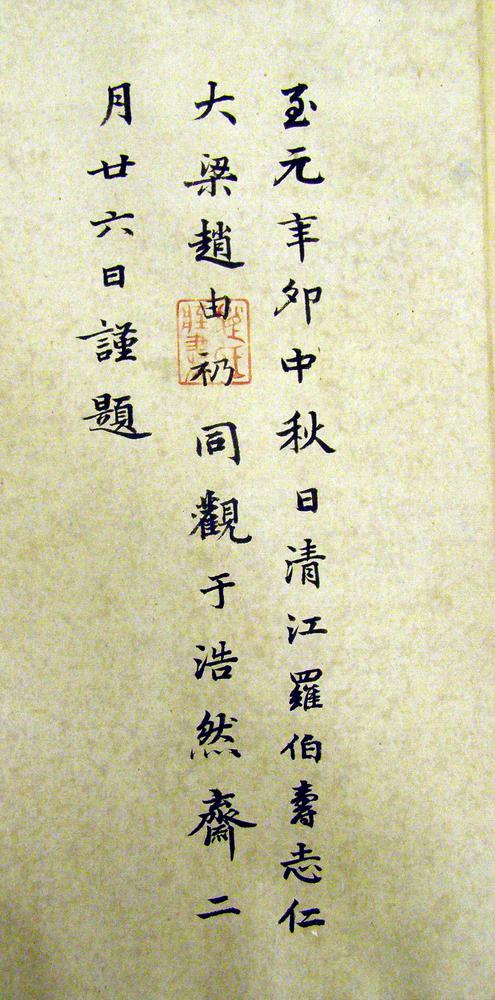 至元辛卯中秋日清江羅伯壽志仁
大梁趙由礽同觀于浩然齋二
月廿六日謹題